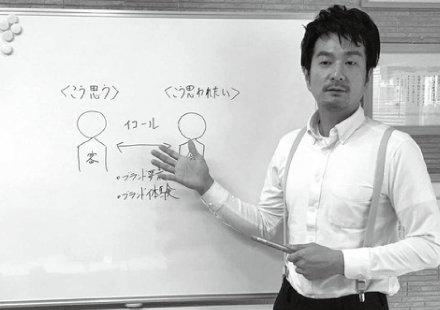 〈こう思う〉
〈こう思われたい〉
イコール
客
・ブランド
・ブランド体験